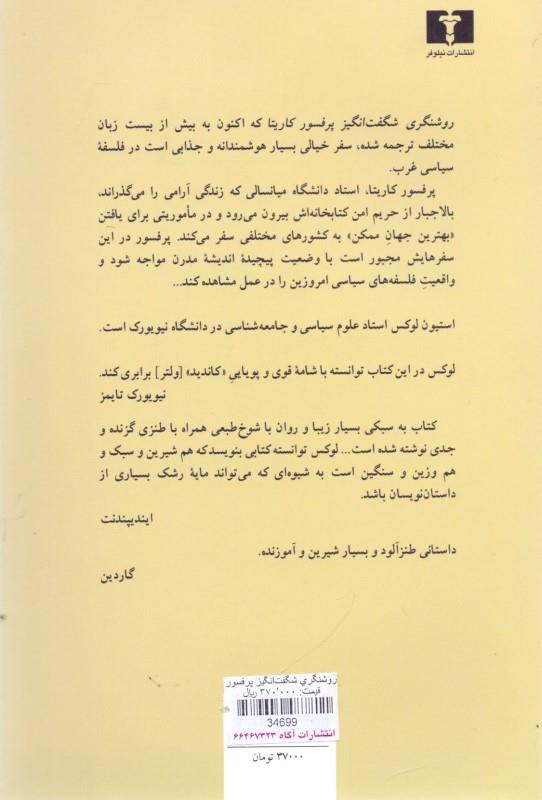 انتشارات نیلوفر
روشنگری شگفت‌انگیز پرفسور کاریتا که اکنون به بیش از بیست زبان
مختلف ترجمه شده، سفر خیالی بسیار هوشمندانه و جذابی است در فلسفهٔ
سیاسی غرب.
پرفسور کاریتا، استاد دانشگاه میانسالی که زندگی آرامی را می‌گذراند،
بالاجبار از حریم امن کتابخانه‌اش بیرون می‌رود و در مأموریتی برای یافتن
«بهترین جهانِ ممکن» به کشورهای مختلفی سفر می‌کند. پرفسور در این
سفرهایش مجبور است با وضعیت پیچیدهٔ اندیشهٔ مدرن مواجه شود و
واقعیتِ فلسفه‌های سیاسی امروزین را در عمل مشاهده کند...
استیون لوکس استاد علوم سیاسی و جامعه‌شناسی در دانشگاه نیویورک است.
لوکس در این کتاب توانسته با شامهٔ قوی و پویاییِ «کاندید» [ولتر] برابری کند.
نیویورک تایمز
کتاب به سبکی بسیار زیبا و روان با شوخ‌طبعی همراه با طنزی گزنده و
جدی نوشته شده است... لوکس توانسته کتابی بنویسد که هم شیرین و سبک و
هم وزین و سنگین است به شیوه‌ای که می‌تواند مایهٔ رشک بسیاری از
داستان‌نویسان باشد.
ایندیپندنت
داستانی طنزآلود و بسیار شیرین و آموزنده.
گاردین
روشنگری شگفت‌انگیز پرفسور
قیمت: ۳۷۰٬۰۰۰ ریال
34699
انتشارات آگاه ۶۶۴۶۷۳۲۳
۳۷۰۰۰ تومان